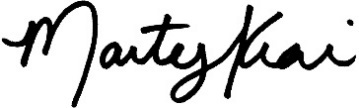 Martey Kiai